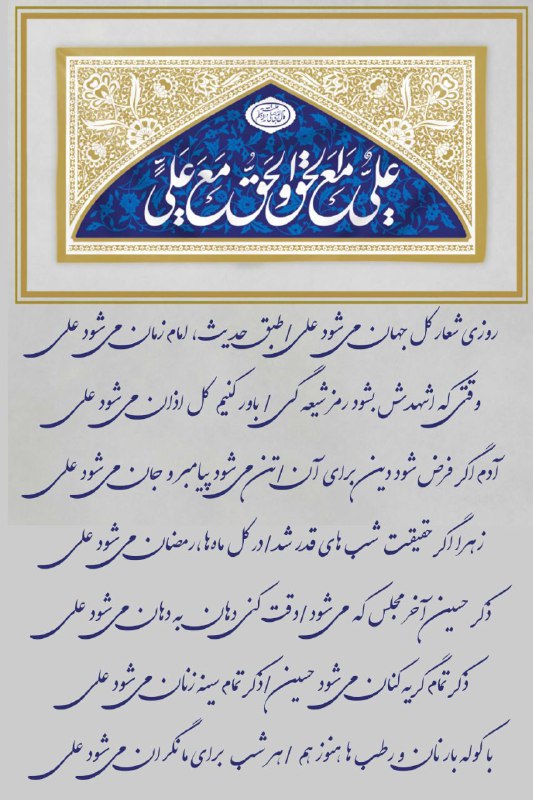 علیٌّ مَعَ الحَقِّ وَ الحَقُّ مَعَ عَلیٍّ
روزی شعار کل جهان می‌شود علی / طبق حدیث، امام زمان می‌شود علی
وقتی که اشهدش بشود رمز شیعه گی / باور کنیم کل اذان می‌شود علی
آدم اگر فرض شود دین برای آن / تن می‌شود پیامبر و جان می‌شود علی
زهرا اگر حقیقت شب های قدر شد / در کل ماه ها، رمضان می‌شود علی
ذکر حسین آخر مجلس که می‌شود / دقت کنی دهان به دهان می‌شود علی
ذکر تمام گریه کنان می‌شود حسین / ذکر تمام سینه زنان می‌شود علی
با کوله بار نان و رطب ها هنوز هم / هر شب برای ما نگران می‌شود علی